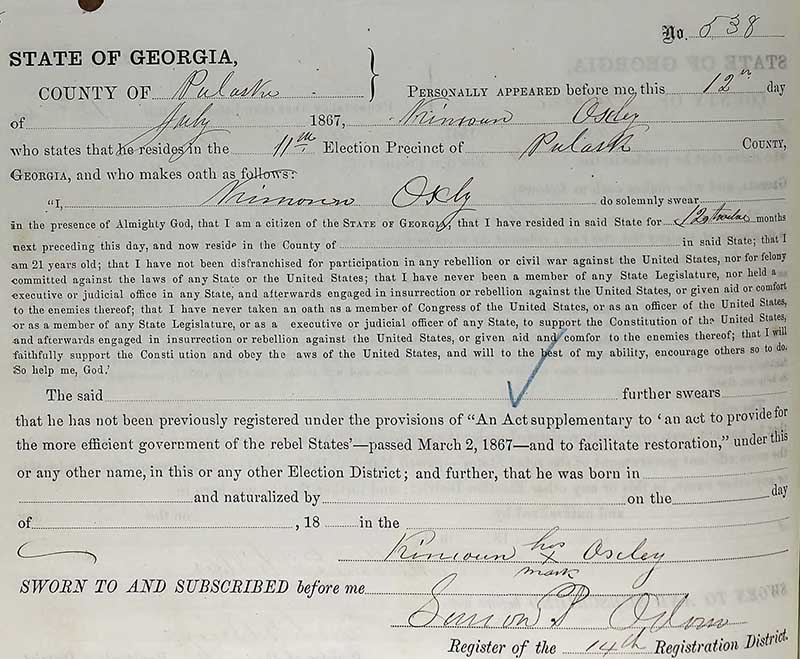 No. 538
STATE OF GEORGIA,
COUNTY OF Pulaski } PERSONALLY APPEARED before me, this 12th day
of July 1867, Oxley
who states that he resides in the 11th Election Precinct of Pulask COUNTY,
GEORGIA, and who makes oath as follows:
"I, Oxly do solemnly swear
in the presence of Almighty God, that I am a citizen of the STATE OF GEORGIA; that I have resided in said State for 12 months
next preceding this day, and now reside in the County of in said State; that I
am 21 years old; that I have not been disfranchised for participation in any rebellion or civil war against the United States, nor for felony
committed against the laws of any State or the United States; that I have never been a member of any State Legislature, nor held a
executive or judicial office in any State, and afterwards engaged in insurrection or rebellion against the United States, or given aid or comfort
to the enemies thereof; that I have never taken an oath as a member of Congress of the United States, or as an officer of the United States,
or as a member of any State Legislature, or as a executive or judicial officer of any State, to support the Constitution of the United States,
and afterwards engaged in insurrection or rebellion against the United States, or given aid and comfor to the enemies thereof; that I will
faithfully support the Consti ution and obey the aws of the United States, and will to the best of my ability, encourage others so to do.
So help me, God.'
The said further swears
that he has not been previously registered under the provisions of "An Act supplementary to 'an act to provide for
the more efficient government of the rebel States'—passed March 2, 1867—and to facilitate restoration," under this
or any other name, in this or any other Election District; and further, that he was born in
and naturalized by on the day
of , 18 in the
his x mark Oxley
SWORN TO AND SUBSCRIBED before me
Odom
Register of the 14th Registration District.